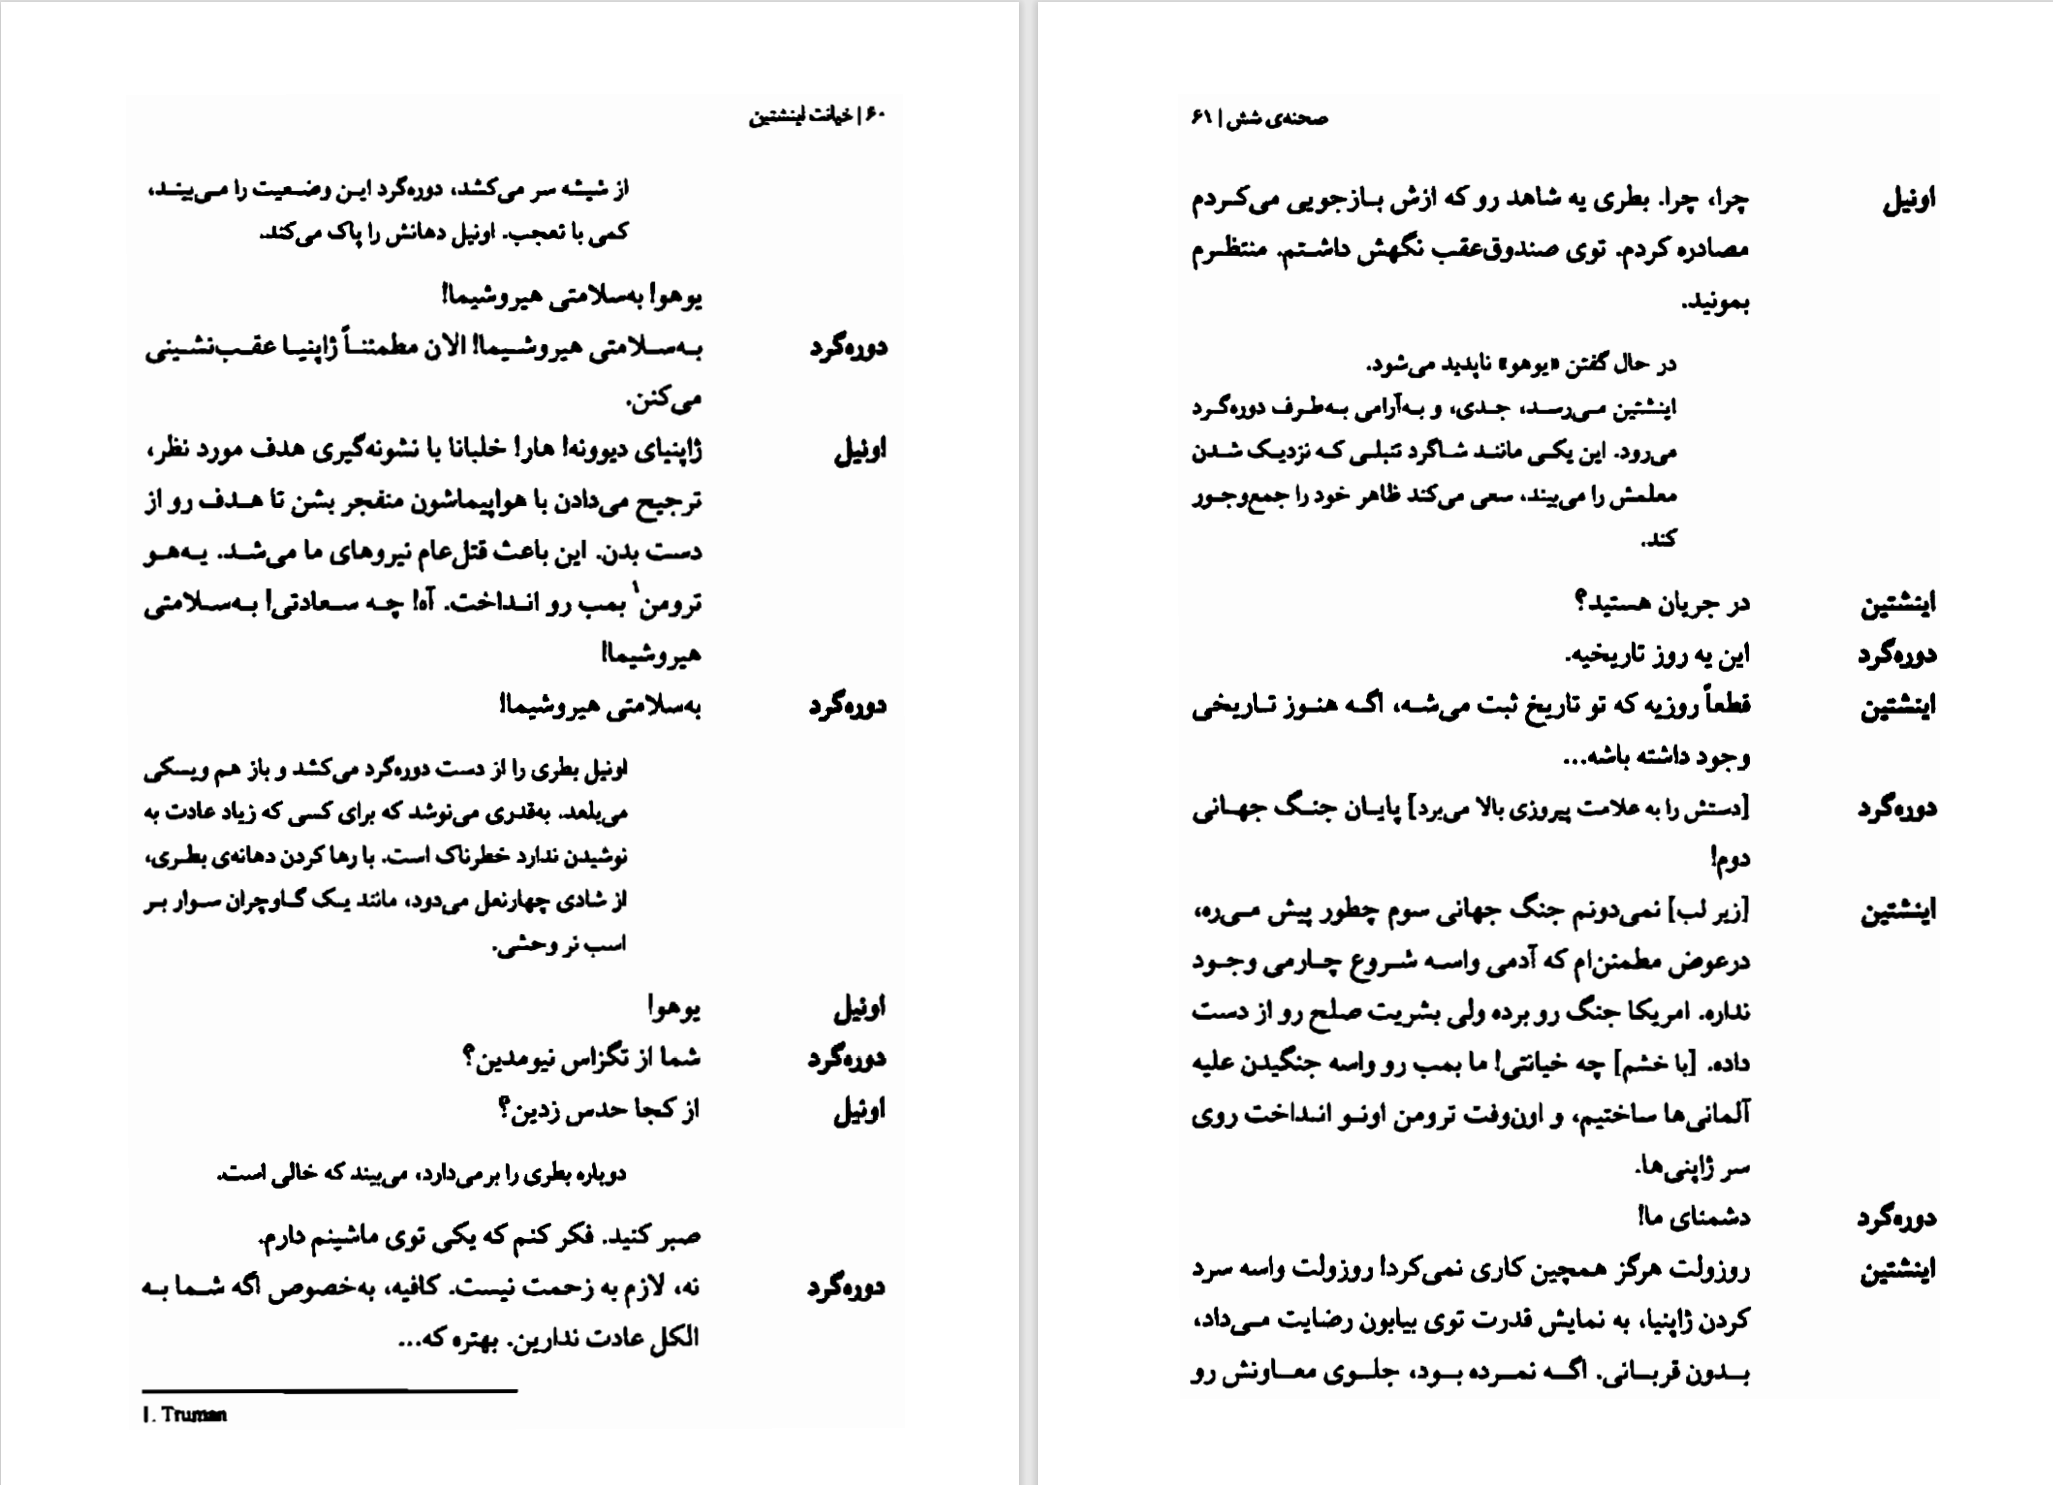 ۶۰ | خیانت اینشتین
از شیشه سر می‌کشد، دوره‌گرد این وضعیت را می‌بیند،
کمی با تعجب. اونیل دهانش را پاک می‌کند.
یوهو! به‌سلامتی هیروشیما!
دوره‌گرد به‌سلامتی هیروشیما! الان مطمئناً ژاپنیا عقب‌نشینی
می‌کنن.
اونیل ژاپنیای دیوونه! هار! خلبانا با نشونه‌گیری هدف مورد نظر،
ترجیح می‌دادن با هواپیماشون منفجر بشن تا هدف رو از
دست بدن. این باعث قتل‌عام نیروهای ما می‌شد. یه‌هو
ترومن۱ بمب رو انداخت. آه! چه سعادتی! به‌سلامتی
هیروشیما!
دوره‌گرد به‌سلامتی هیروشیما!
اونیل بطری را از دست دوره‌گرد می‌کشد و باز هم ویسکی
می‌بلعد. به‌قدری می‌نوشد که برای کسی که زیاد عادت به
نوشیدن ندارد خطرناک است. با رها کردن دهانه‌ی بطری،
از شادی چهارنعل می‌دود، مانند یک گاوچران سوار بر
اسب نر وحشی.
اونیل یوهو!
دوره‌گرد شما از تگزاس نیومدین؟
اونیل از کجا حدس زدین؟
دوباره بطری را برمی‌دارد، می‌بیند که خالی است.
صبر کنید. فکر کنم که یکی توی ماشینم دارم.
دوره‌گرد نه، لازم به زحمت نیست. کافیه، به‌خصوص اگه شما به
الکل عادت ندارین. بهتره که...
1. Truman
صحنه‌ی شش | ۶۱
اونیل چرا، چرا. بطری یه شاهد رو که ازش بازجویی می‌کردم
مصادره کردم. توی صندوق‌عقب نگهش داشتم. منتظرم
بمونید.
در حال گفتن «یوهو» ناپدید می‌شود.
اینشتین می‌رسد، جدی، و به‌آرامی به‌طرف دوره‌گرد
می‌رود. این یکی مانند شاگرد تنبلی که نزدیک شدن
معلمش را می‌بیند، سعی می‌کند ظاهر خود را جمع‌وجور
کند.
اینشتین در جریان هستید؟
دوره‌گرد این یه روز تاریخیه.
اینشتین قطعاً روزیه که تو تاریخ ثبت می‌شه، اگه هنوز تاریخی
وجود داشته باشه...
دوره‌گرد [دستش را به علامت پیروزی بالا می‌برد] پایان جنگ جهانی
دوم!
اینشتین [زیر لب] نمی‌دونم جنگ جهانی سوم چطور پیش می‌ره،
درعوض مطمئن‌ام که آدمی واسه شروع چارمی وجود
نداره. امریکا جنگ رو برده ولی بشریت صلح رو از دست
داده. [با خشم] چه خیانتی! ما بمب رو واسه جنگیدن علیه
آلمانی‌ها ساختیم، و اون‌وقت ترومن اونو انداخت روی
سر ژاپنی‌ها.
دوره‌گرد دشمنای ما!
اینشتین روزولت هرگز همچین کاری نمی‌کرد! روزولت واسه سرد
کردن ژاپنیا، به نمایش قدرت توی بیابون رضایت می‌داد،
بدون قربانی. اگه نمرده بود، جلوی معاونش رو